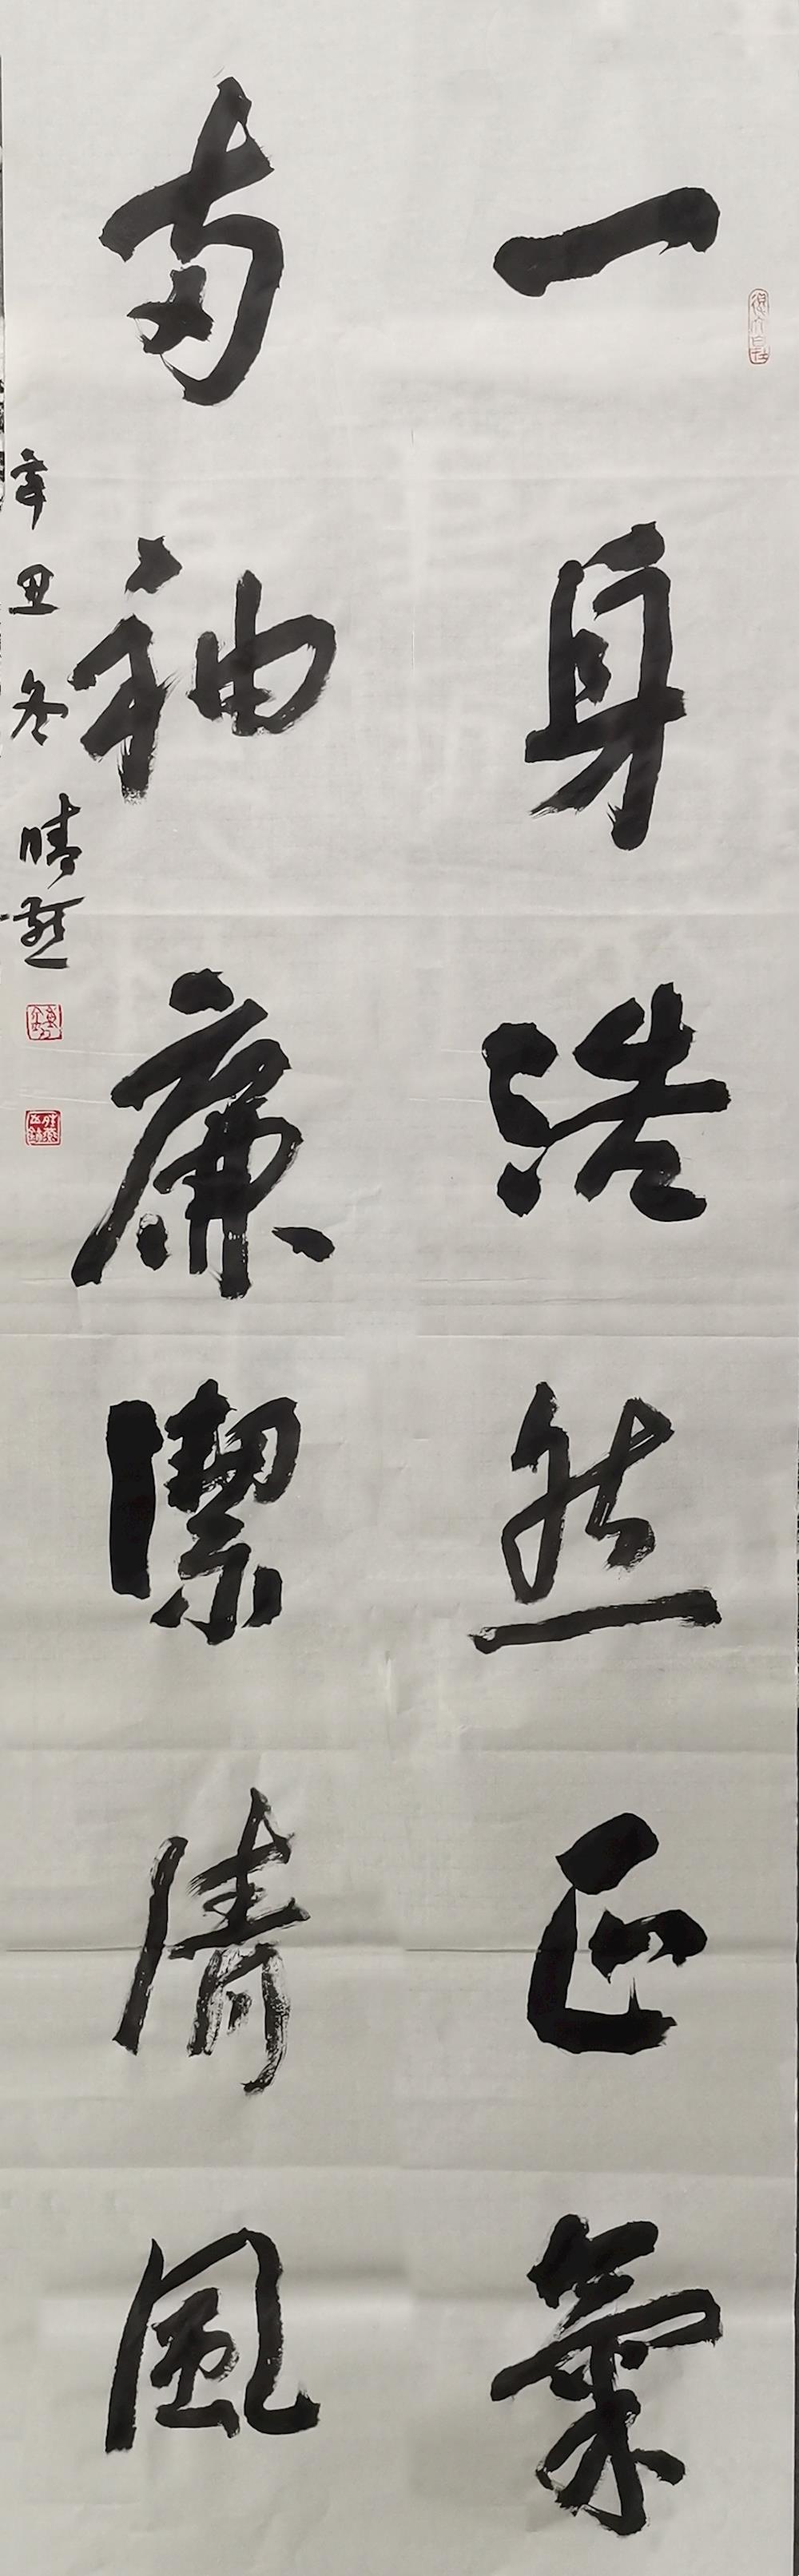 一身浩然正氣
两袖廉潔清風
辛丑冬晴